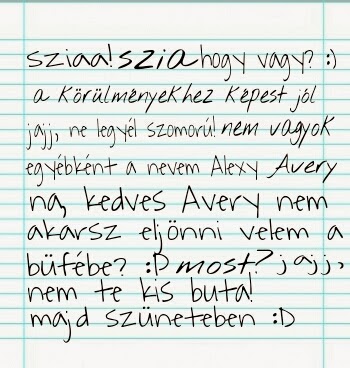 sziaa! szia hogy vagy? :)
a körülményekhez képest jól
jajj, ne legyél szomorú! nem vagyok
egyébként a nevem Alexy Avery
na, kedves Avery nem
akarsz eljönni velem a
büfébe? :D most? jajj,
nem te kis buta!
majd szüneteben :D